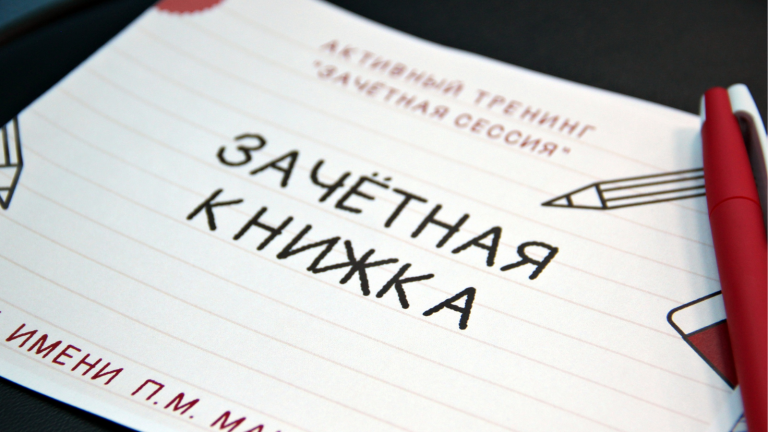 АКТИВНЫЙ ТРЕНИНГ
"ЗАЧЁТНАЯ СЕССИЯ"
ЗАЧЁТНАЯ
КНИЖКА
ИМЕНИ П.М.